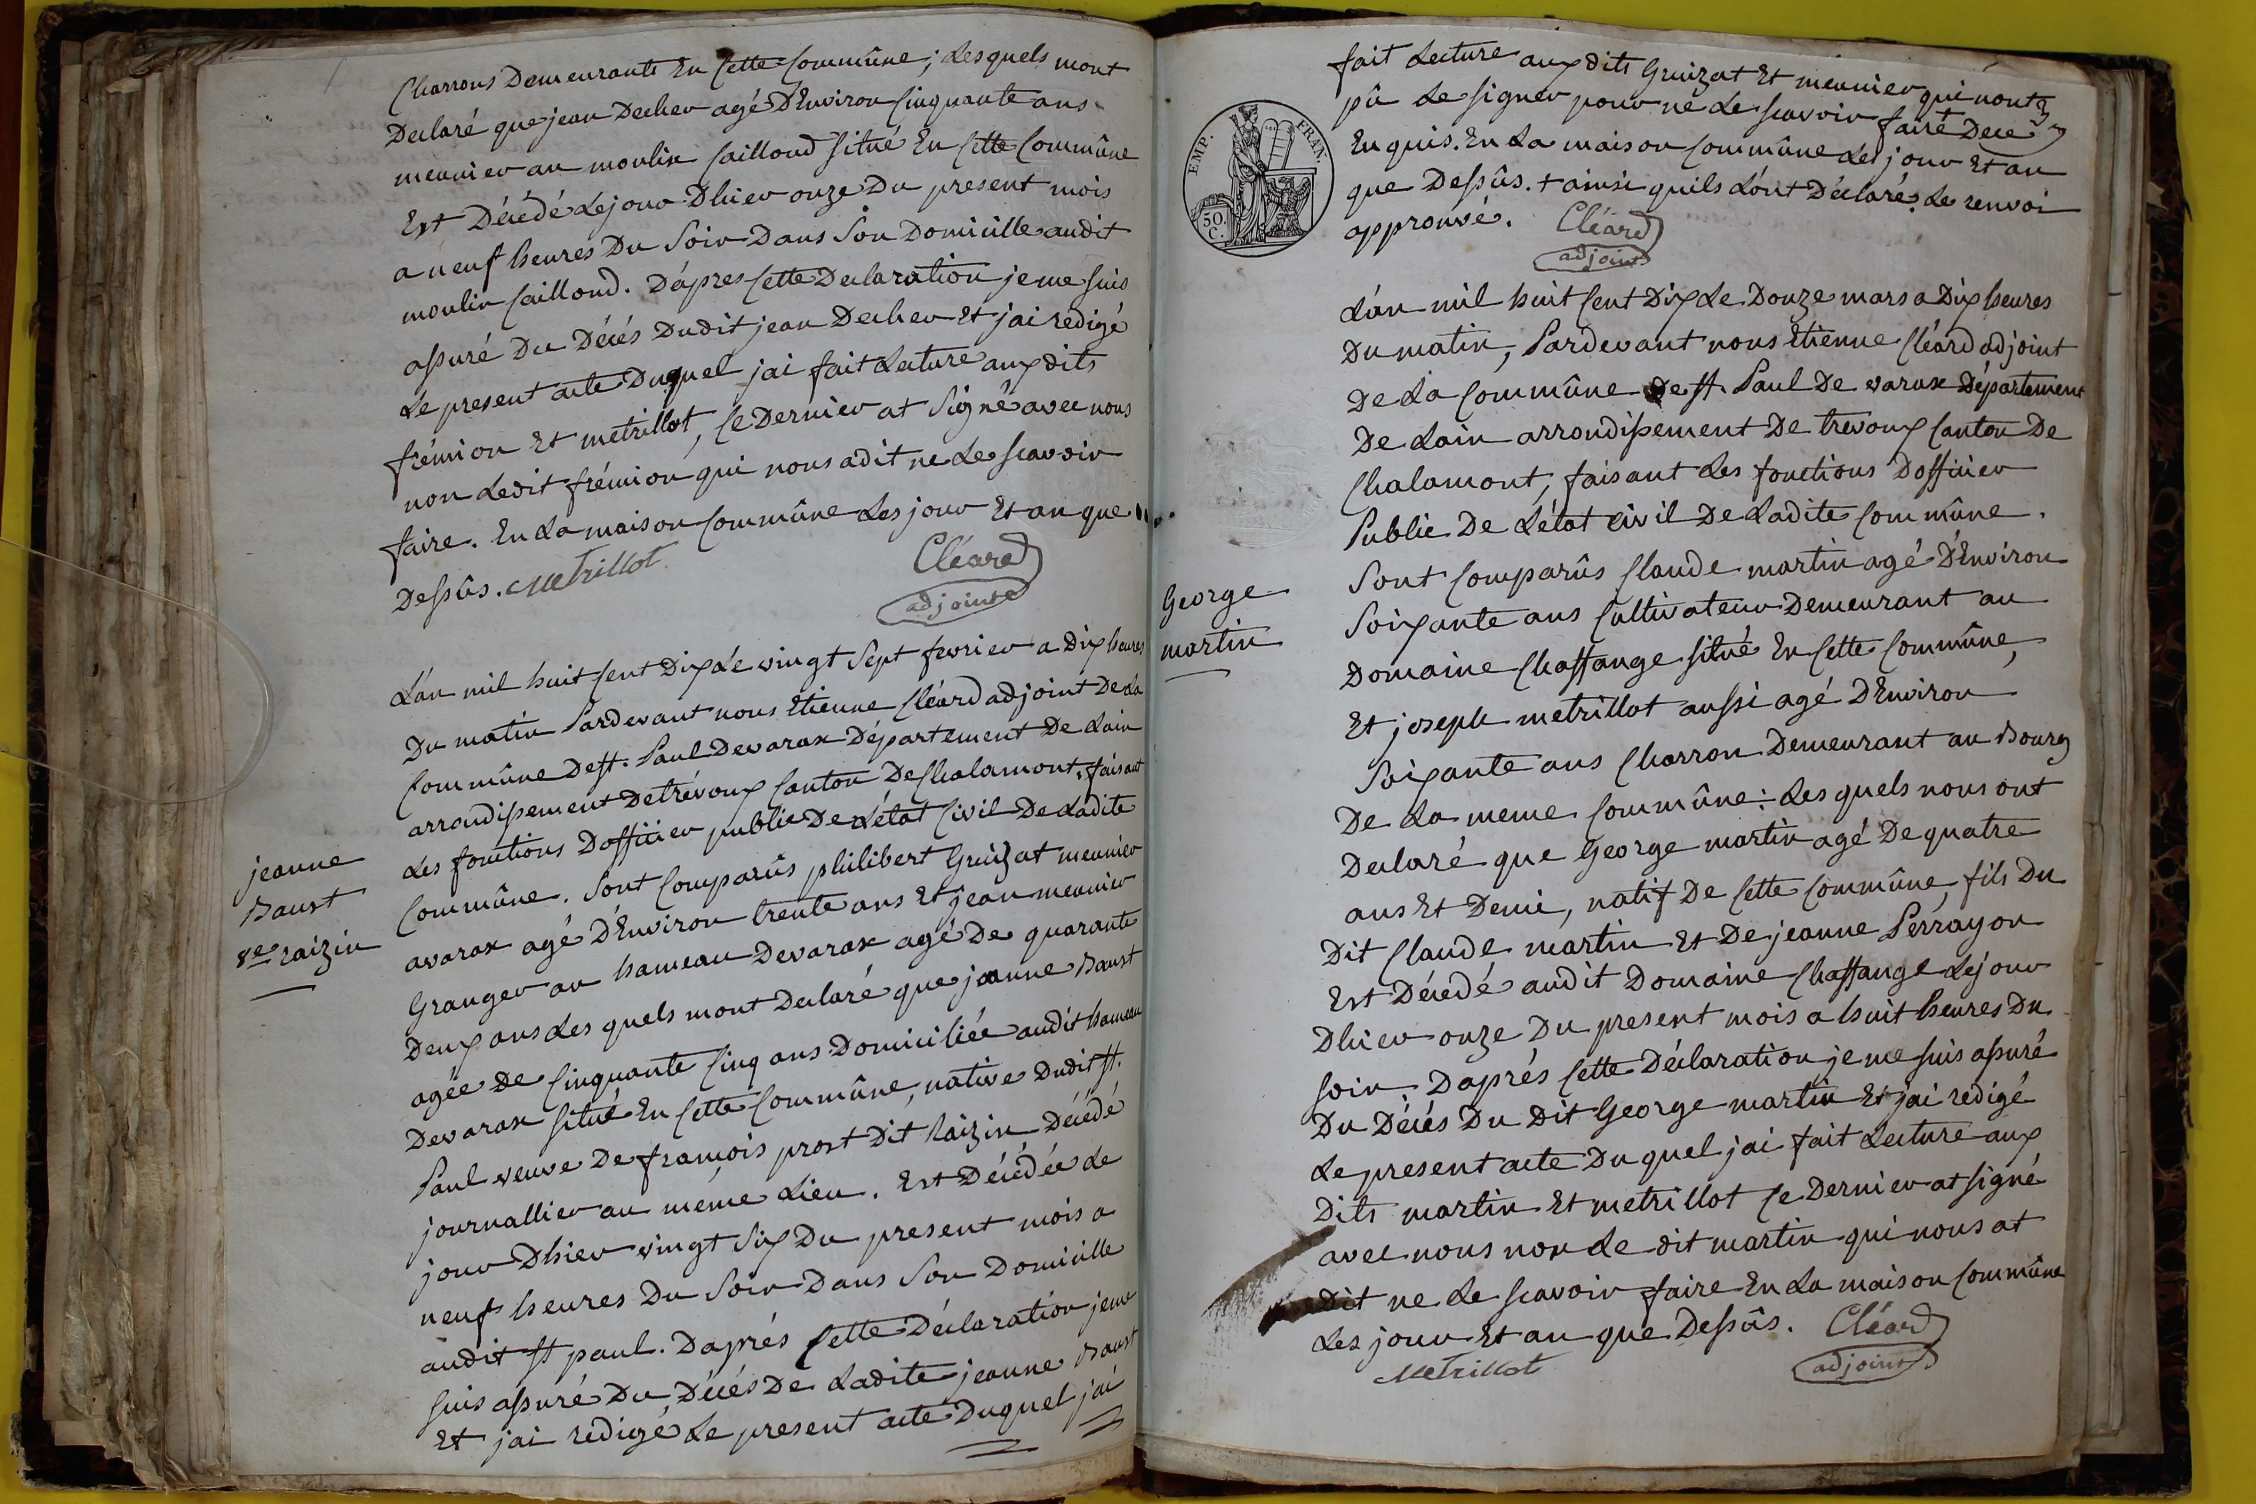 Charrons Demeurants En Cette Commûne; Lesquels mont
Declaré que jean Decher agé D'Environ Cinquante ans
meunier au moulin Cailloud situé En Cette Commûne
Est Décédé Le jour D'hier onze Du present mois
a neuf heures Du Soir Dans Son Domicille audit
moulin Cailloud. D'apres Cette Declaration je me suis
assuré Du Décés Dudit jean Decher Et j'ai redigé
Le present acte Duquel jai fait Lecture aux dits
frémion Et metrillot, Ce Dernier at Signé avec nous
non Ledit frémion qui nous a dit ne Le scavoir
faire. En La maison Commûne Les jour Et an que
Dessûs. Metrillot Cléard
adjoint
L'an mil huit Cent Dix Le vingt Sept fevrier a Dix heures
Du matin Pardevant nous Etienne Cléard adjoint De La
Commûne De St. Paul De varax Département De Lain
arrondissement De trévoux Canton De Chalamont, faisant
Les fonctions D'officier public De L'état Civil De Ladite
Commûne. Sont Comparûs philibert Gruizat meunier
a varax agé D'Environ trente ans Et jean meunier
Granger au hameau De varax agé De quarante
Deux ans Les quels mont Declaré que jeanne Baust
agée De Cinquante Cinq ans Domiciliée audit hameau
De varax situé En Cette Commûne, native Dudit St.
Paul veuve De françois prost Dit Raizin Décédé
journallier au même Lieu. Est Décédée Le
jour D'hier vingt Six Du present mois a
neuf heures Du Soir Dans Son Domicille
audit St paul. D'aprés Cette Déclaration je me
suis assuré Du Décés De Ladite jeanne Baust
Et j'ai redigé Le present acte Duquel j'ai
jeanne
Baust
ve raizin
fait Lecture aux dits Gruizat Et meunier qui n'ont
pû Le signer pour ne Le scavoir faire + De ce
En quis. En La maison Commûne Les jour Et an
que Dessûs. + ainsi quils L'ont Déclaré. Le renvoi
approuvé. Cléard
adjoint
EMP. FRAN.
50.
C.
L'an mil huit Cent Dix Le Douze mars a Dix heures
Du matin, Pardevant nous Etienne Cléard adjoint
De La Commûne De St. Paul De varax Département
De Lain arrondissement De trevoux Canton De
Chalamont, faisant Les fonctions D'officier
Public De L'état civil De Ladite Commûne.
Sont Comparûs Claude martin agé D'Environ
Soixante ans Cultivateur Demeurant au
Domaine Chaffange situé En Cette Commûne,
Et joseph metrillot aussi agé D'Environ
Soixante ans Charron Demeurant au Bourg
De La meme Commûne: Les quels nous ont
Declaré que George martin agé De quatre
ans Et Demi, natif De Cette Commûne, fils Du
Dit Claude martin Et De jeanne Perrayon
Est Décédé audit Domaine Chaffange Le jour
D'hier onze Du present mois a huit heures Du
soir. D'aprés Cette Déclaration je me suis assuré
Du Décés Du Dit George martin Et j'ai redigé
Le present acte Du quel j'ai fait Lecture aux
Dits martin Et metrillot Ce Dernier at signé
avec nous non Le dit martin qui nous at
dit ne Le scavoir faire En La maison Commûne
Les jour Et an que Dessûs. Cléard
Metrillot adjoint
George
martin